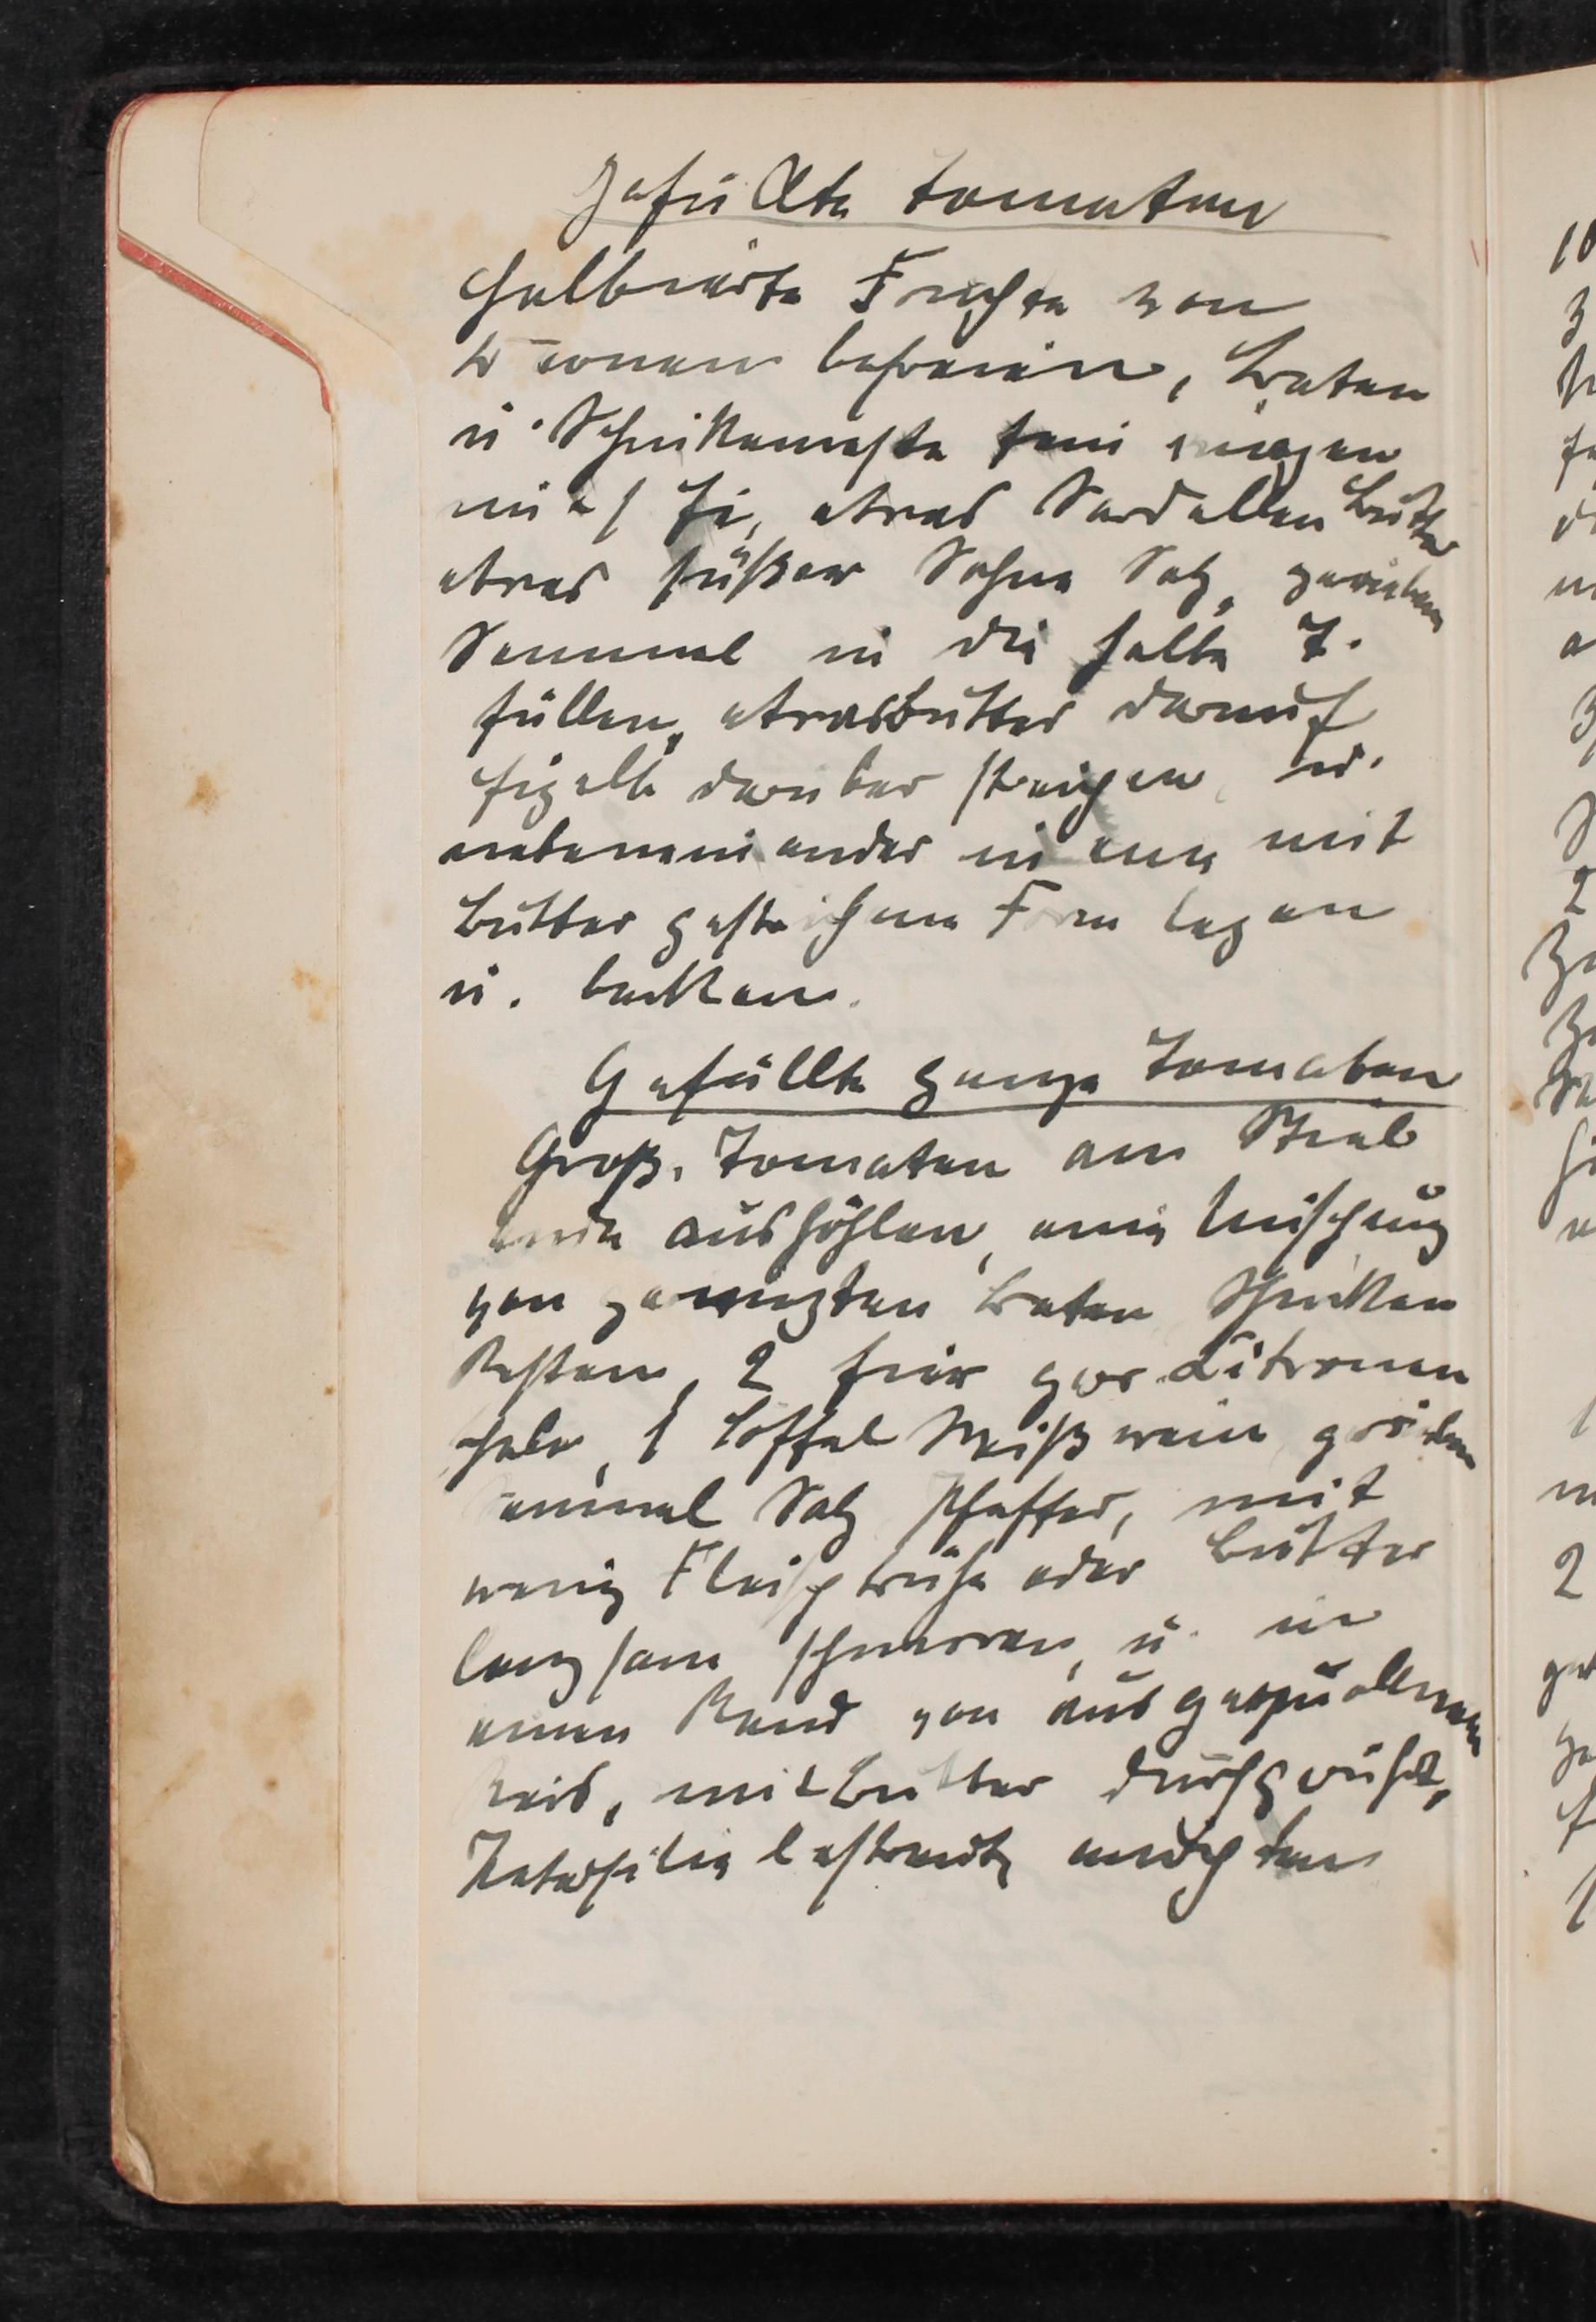 Gefüllte Tomaten
Halbierte Früchte von
Körnern befreien, Braten
u. Schinkenreste fein wiegen
mit 1 Ei, etwas Sardellenbutter
etwas süßer Sahne Salz, gerieben
Semmel in die halbe T.
füllen, etwas Butter darauf
Eigelb darüber streichen u.
nebeneinander in eine mit
Butter gestrichene Form legen
u. backen.
Gefüllte ganze Tomaten
Groß. Tomaten am Stiel
ende aushöhlen, eine Mischung
von gewiegten Braten Schinken
Resten, 2 Eier gew. Zitronen
schale, 1 Löffel Weißwein gerieben
Semmel Salz Pfeffer, mit
wenig Fleischbrühe oder Butter
langsam schmoren, u. in
einen Rand von ausgequollenem
Reis, mit Butter durchgerührt,
Petersilie bestreut, anrichten